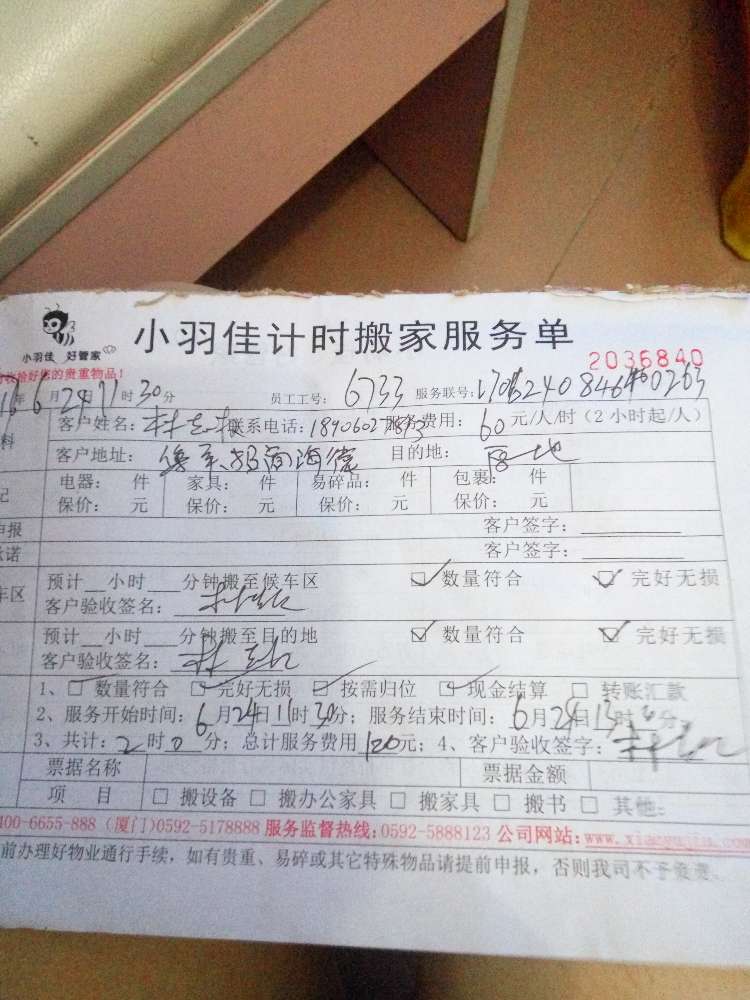 小羽佳 好管家
小羽佳计时搬家服务单
2036840
收拾好您的贵重物品！
年6月24日11时30分 员工工号：6733 服务联号：
客户姓名：林志 联系电话： 服务费用：60元/人/时（2小时起/人）
客户地址： 招商海德 目的地：
电器： 件 家具： 件 易碎品： 件 包裹： 件
保价： 元 保价： 元 保价： 元 保价： 元
申报 客户签字：
承诺 客户签字：
车区 预计__小时__分钟搬至候车区 数量符合 完好无损
客户验收签名：
预计__小时__分钟搬至目的地 数量符合 完好无损
客户验收签名：
1、数量符合 完好无损 按需归位 现金结算 转账汇款
2、服务开始时间：6月24日11时30分；服务结束时间：6月24日13时 分；
3、共计：2时0分；总计服务费用120元；4、客户验收签字：
票据名称 票据金额
项 目 搬设备 搬办公家具 搬家具 搬书 其他：
400-6655-888 (厦门)0592-5178888 服务监督热线:0592-5888123 公司网站:
前办理好物业通行手续，如有贵重、易碎或其它特殊物品请提前申报，否则我司不予负责。